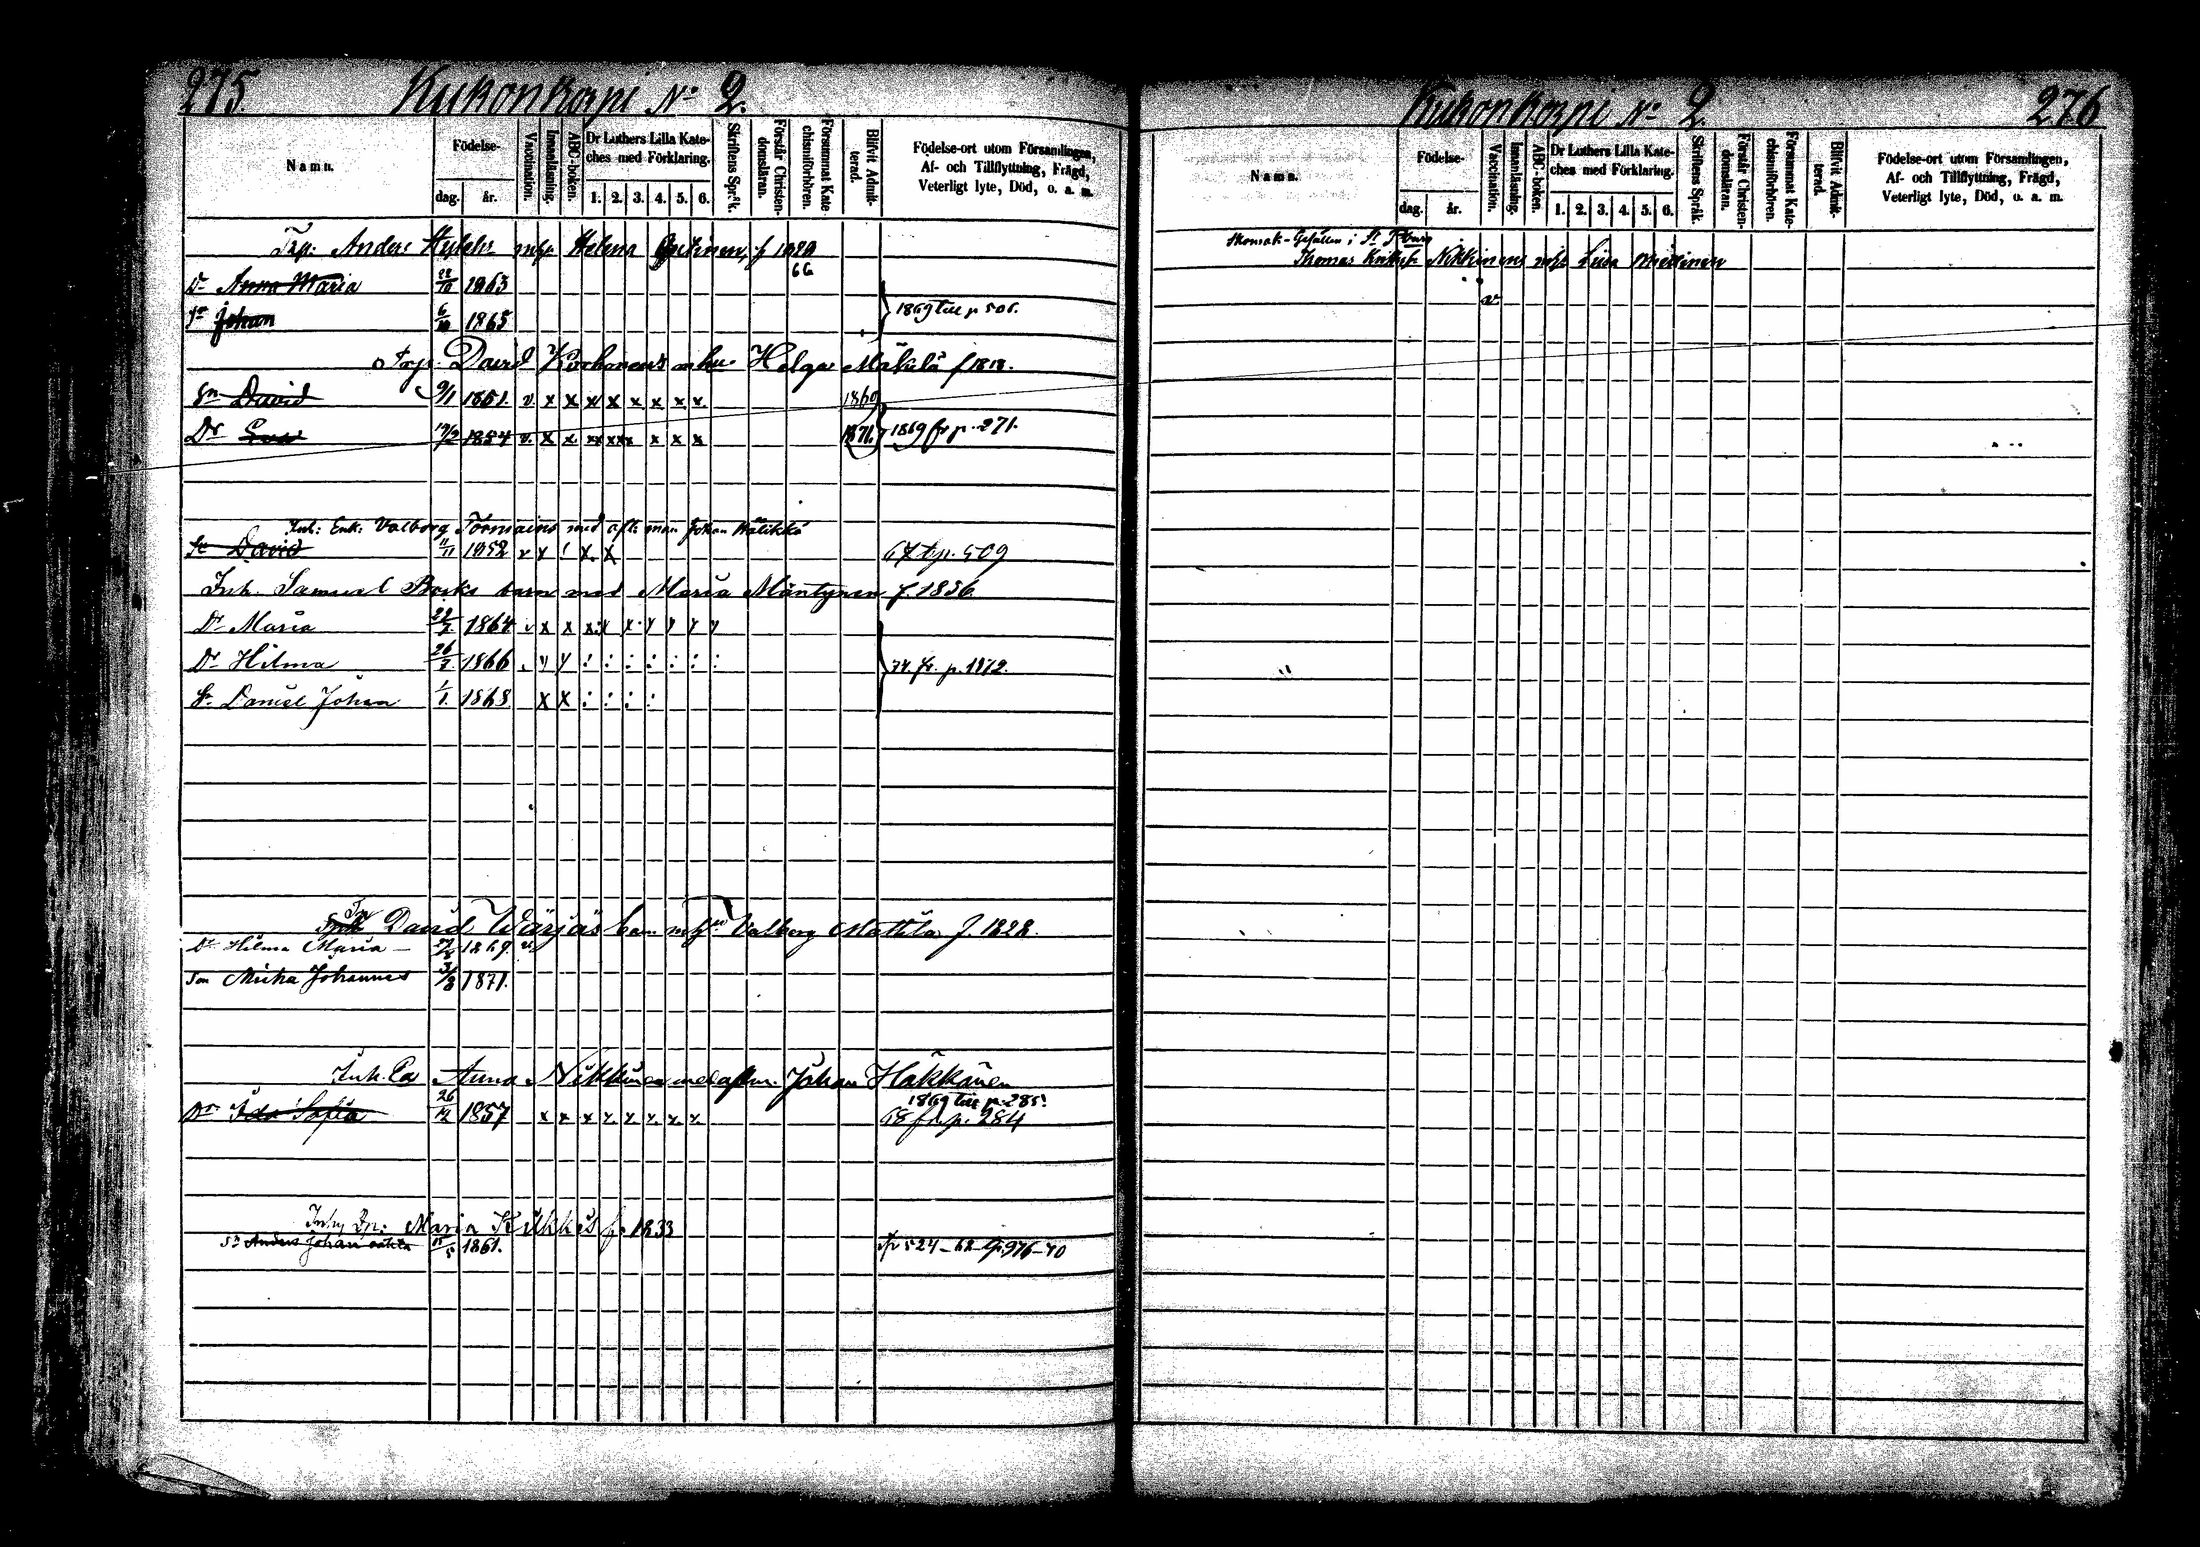 275. Kukonkorpi No 2.
Namn.
Födelse-
dag. år.
Vaccination.
Innanläsning.
ABC-boken.
Dr Luthers Lilla Kate-
ches med Förklaring.
1. 2. 3. 4. 5. 6.
Skriftens Språk.
Förstår Christen-
domsläran.
Försummat Kate-
chismiförhören.
Blifvit Admit-
terad.
Födelse-ort utom Församlingen,
Af- och Tillflyttning, Frägd,
Veterligt lyte, Död, o. a. m.
Trp: Anders mhu Helena f 1829
66
Dr Anna Maria 1863
Sn Johan 6/10 1865 1869 till p 506.
Trp. David Korhonens m hu Helga Mäkelä f 1818.
Sn David 9/1 1851. v. x x x x x x x x 1869
Dr Eva 19/2 1854 v. x x x x x x x x 1871. 1869 fr p. 271.
Inh: Enk: Valborg med afl. man Johan
Sn David 11/11 1852 v x ! x x p. 509
Inh. Samuel barn med Maria Mäntynen f. 1836
Dr Maria 1864
Dr Hilma 1866 74 fr. p. 1812.
Sn Daniel Johan 1/1. 1868 x x : : : :
David barn m hu Valborg Mattila f. 1828.
Dr Hilma Maria 1869. v.
Son Micka Johannes 3/8 1871.
Inh. Anna Nikkinen med afl m. Johan Häkkänen
1869 till p. 285.
Dr Ida Sofia 1857 x x x x x x x x 68 fr. p. 284
Maria Kukkis f. 1833
Sn Anders Johan oäkta 1861. fr p 524-68 976-70
Kukonkorpi No 2. 276
Namn.
Födelse-
dag. år.
Vaccination.
Innanläsning.
ABC-boken.
Dr Luthers Lilla Kate-
ches med Förklaring.
1. 2. 3. 4. 5. 6.
Skriftens Språk.
Förstår Christen-
domsläran.
Försummat Kate-
chismiförhören.
Blifvit Admit-
terad.
Födelse-ort utom Församlingen,
Af- och Tillflyttning, Frägd,
Veterligt lyte, Död, o. a. m.
Skomak-Gesällen i St Pburg
Thomas Nikkinens mhu Lisa
v